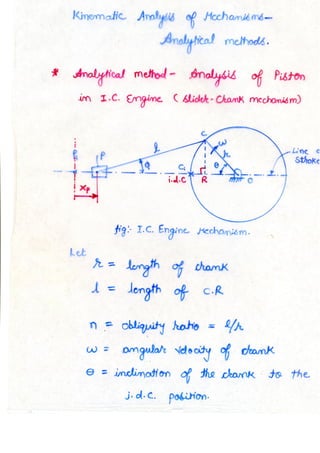 Kinematic Analysis of Mechanisms-
Analytical methods.
* Analytical method - Analysis of Piston
in I.C. Engine (Slider-Crank mechanism)
C
l
ω
r
P
φ
C₁
θ
Line o
Stroke
i.d.c
R
O
xp
fig:- I.C. Engine Mechanism.
Let
r = length of crank
l = length of C.R
n = obliquity ratio = l/r
ω = angular velocity of crank
θ = inclination of the crank to the
i.d.c. position.